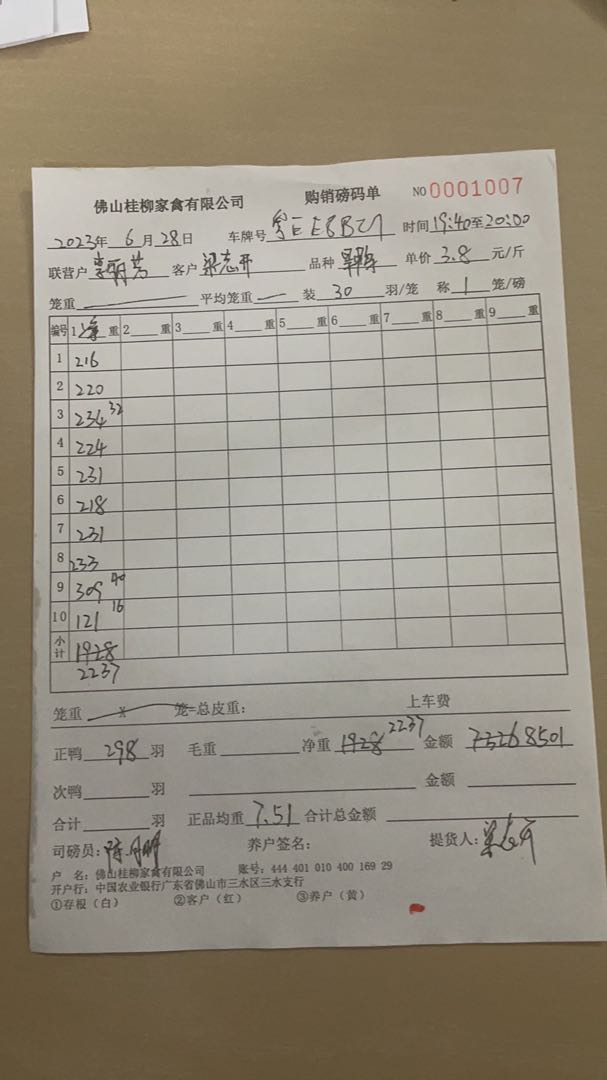 佛山桂柳家禽有限公司 购销磅码单 NO 0001007
2023年 6月28日 车牌号 粤EE8B21 时间 19:40至20:00
联营户 李丽芳 客户 梁志开 品种 单价 3.8 元/斤
笼重 平均笼重 装 30 羽/笼 称 1 笼/磅
编号 1 净 重 2 重 3 重 4 重 5 重 6 重 7 重 8 重 9 重
1 216
2 220
3 234 32
4 224
5 231
6 218
7 231
8 233
9 309 40
10 121 16
小计 1928
2237
笼重 X 笼=总皮重: 上车费
正鸭 298 羽 毛重 净重 1928 2237 金额 7326 8501
次鸭 羽 金额
合计 羽 正品均重 7.51 合计总金额
司磅员: 养户签名: 提货人: 梁志开
户 名: 佛山桂柳家禽有限公司 账号: 444 401 010 400 169 29
开户行: 中国农业银行广东省佛山市三水区三水支行
①存根（白） ②客户（红） ③养户（黄）